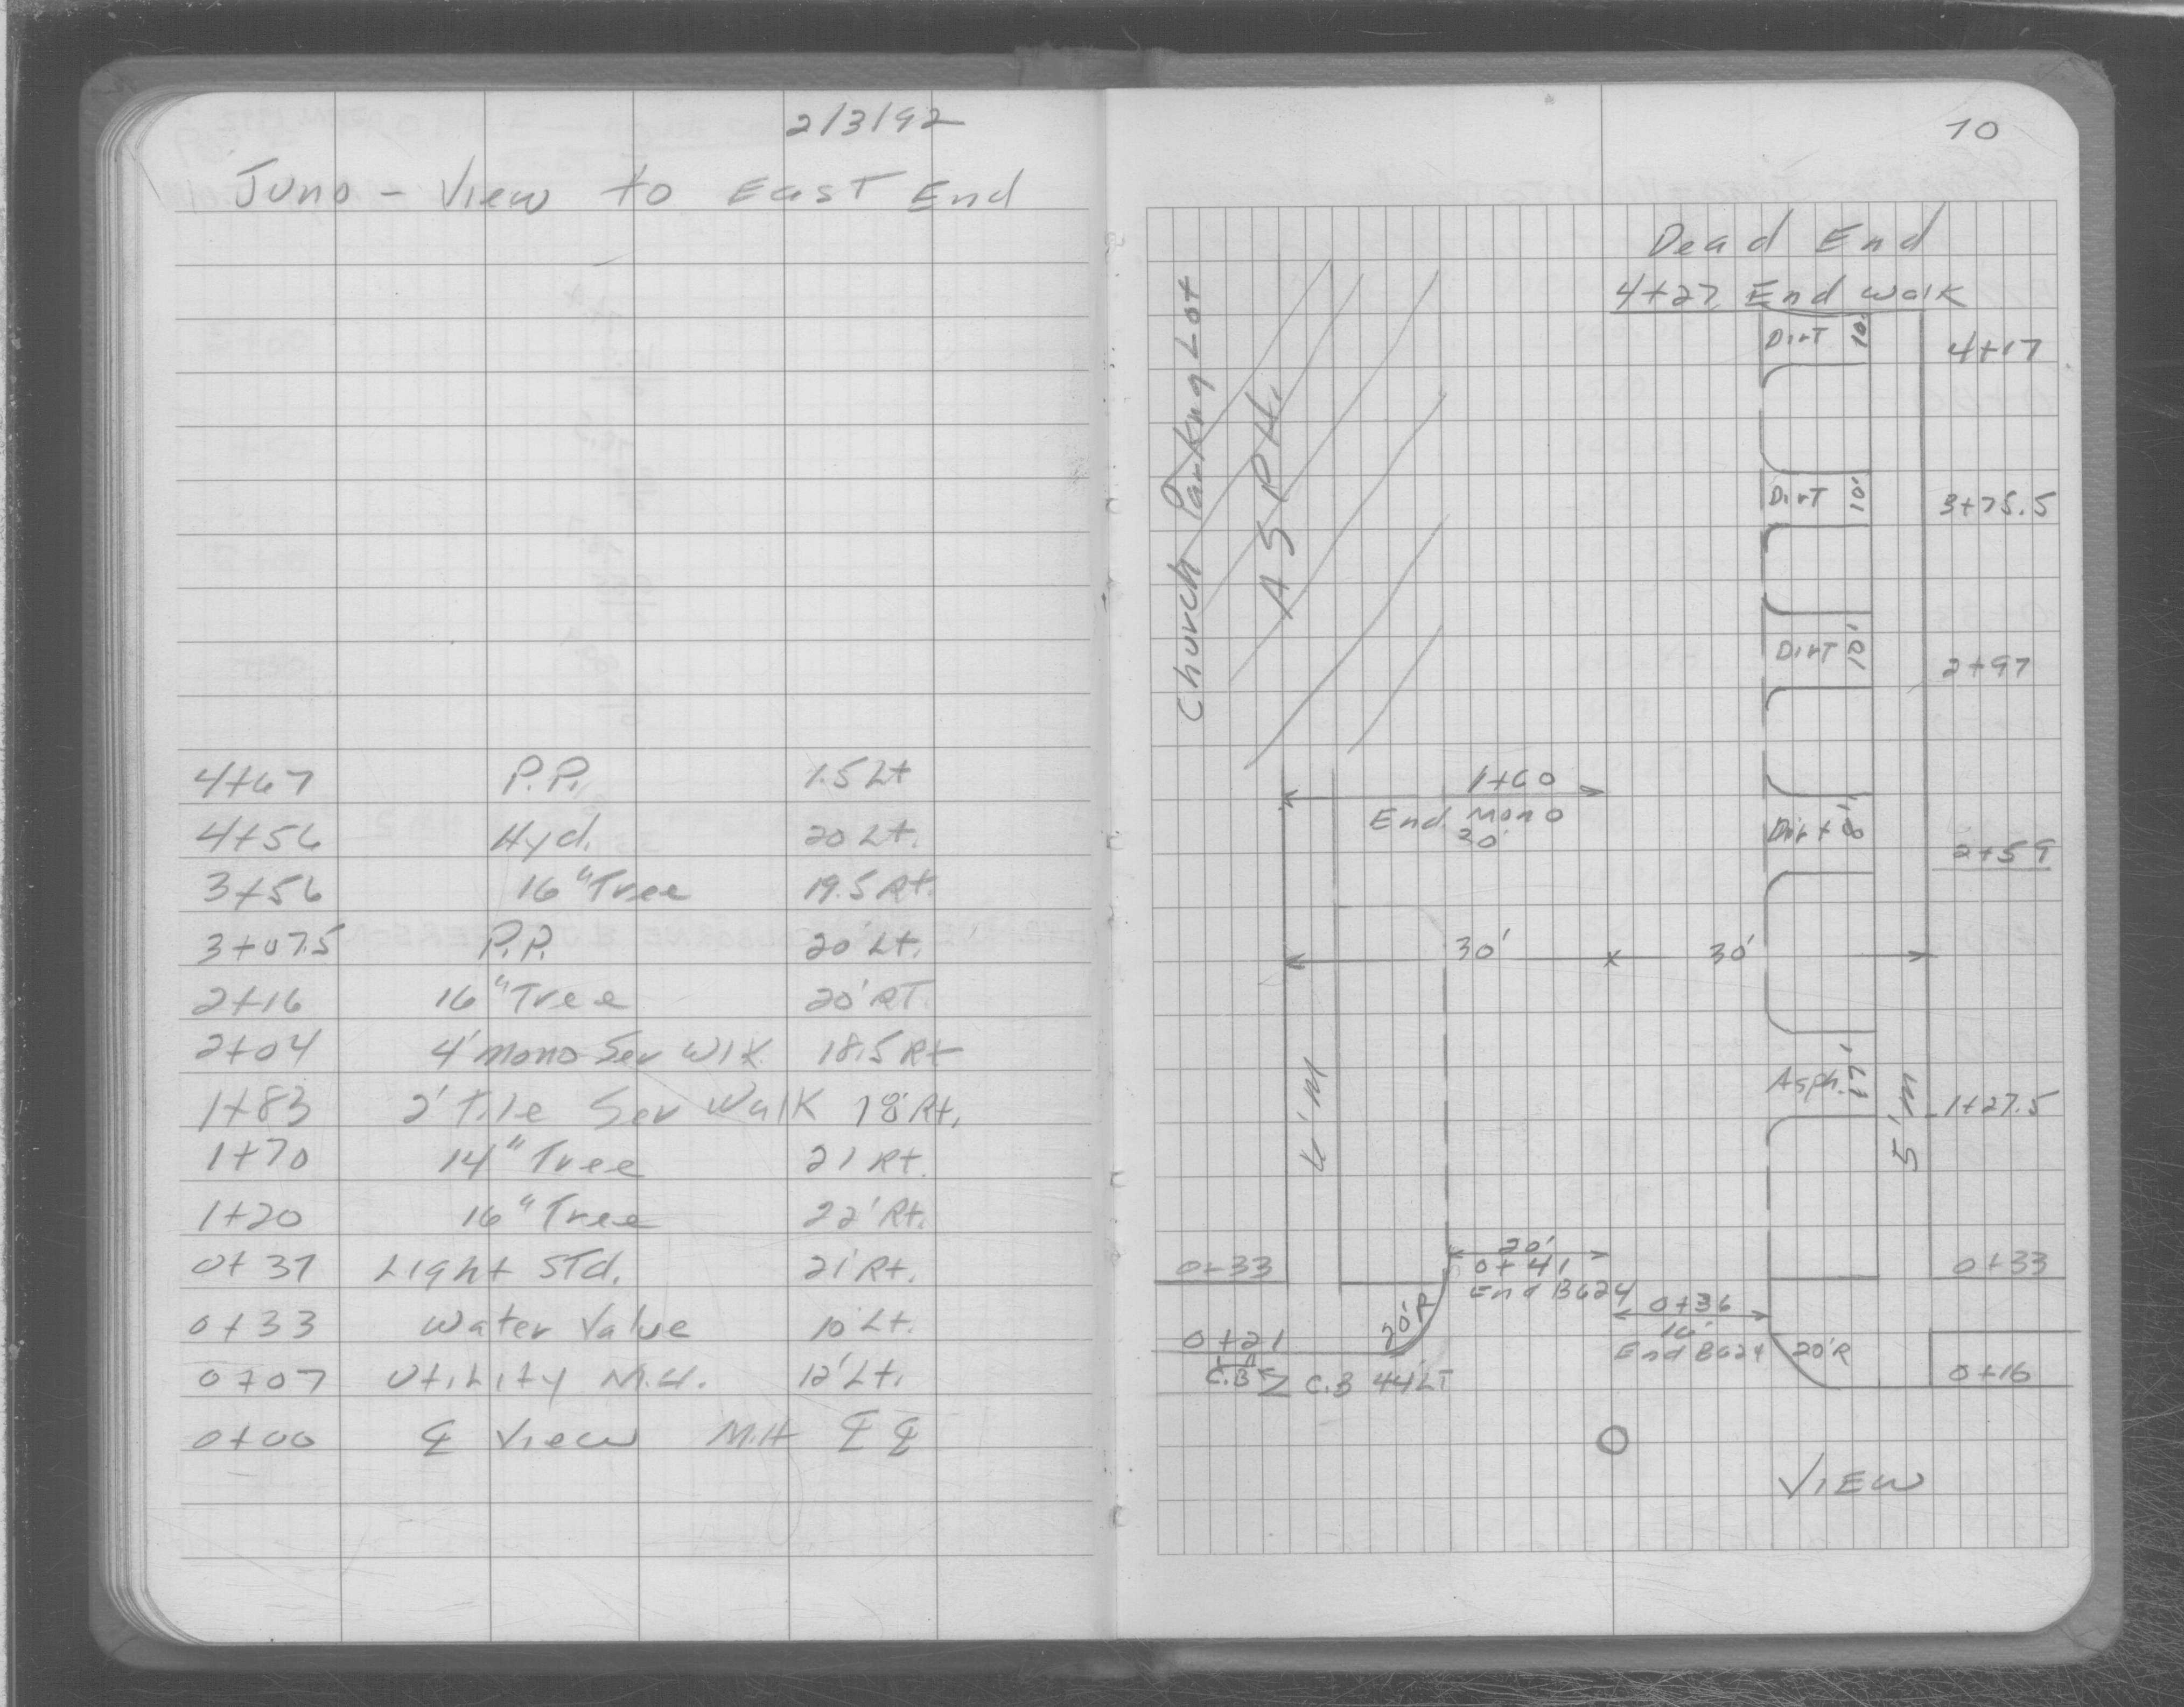 2/3/92
Juno - View to East End
4+67 P.P. 1.5 Lt
4+56 Hyd. 20 Lt.
3+56 16" Tree 19.5 Rt.
3+07.5 P.P. 20' Lt.
2+16 16" Tree 20' RT.
2+04 4' mono Ser Wlk 18.5 Rt
1+83 2' Tile Ser Walk 18' Rt.
1+70 14" Tree 21 Rt.
1+20 16" Tree 22' Rt.
0+37 Light STd. 21' Rt.
0+33 Water Valve 10' Lt.
0+07 Utility M.H. 12' Lt.
0+00 ℄ View M.H ℄ ℄
10
Dead End
4+27 End walk
Dirt 10' 4+17
Church Parking Lot
ASPH.
Dirt 10' 3+75.5
Dirt 10' 2+97
1+60
End Mono
20'
Dirt 8' 2+59
30' 30'
Asph. 17' 1+27.5
5'm
0+33
20'
0+41
End B624
0+33
20'R
0+36
16'
End B624
20'R
0+21
C.B
C.B 44' LT
0+16
VIEW